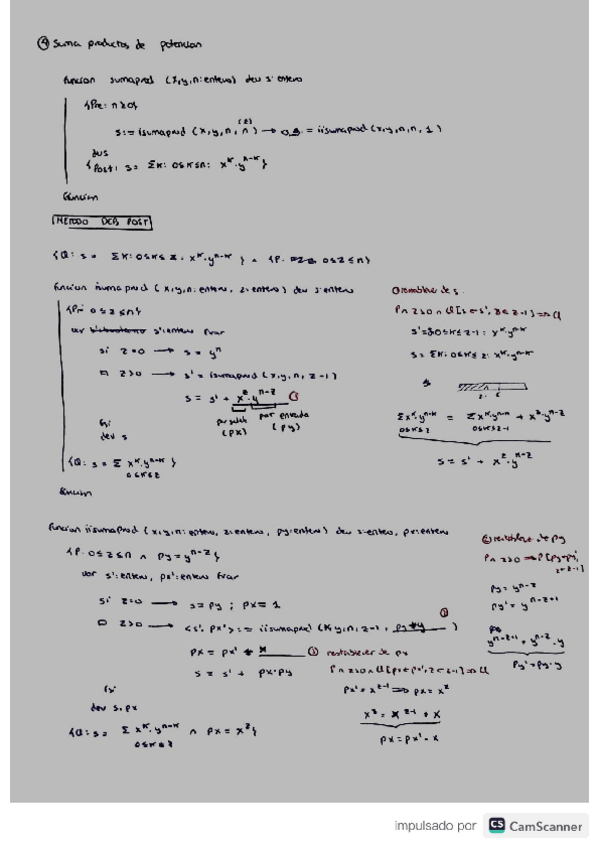 ④ Suma productos de potencias
función sumaprod (x,y,n:entero) dev s:entero
{Pre: n≥0}
s:= isumaprod (x,y,n,n) → = iisumaprod (x,y,n,n,1)
dev s
{Post: s= Σk: 0≤k≤n: x^k·y^n-k}
función
MÉTODO DEB POST
{Q: s= Σk: 0≤k≤z: x^k·y^n-k} ∧ {P: 0≤z≤n}
función isumaprod (x,y,n:entero, z:entero) dev s:entero
{P: 0≤z≤n}
var s':entero fvar
si z=0 → s= y^n
□ z>0 → s' = isumaprod (x,y,n,z-1)
s= s' + x^z·y^n-z ①
por salida (px)
por entrada (py)
fsi
dev s
{Q: s= Σ x^k·y^n-k}
0≤k≤z
función
① restablecer de s
P∧ z>0 ∧ Q[s←s', z←z-1] ⇒ Q
s'= Σ 0≤k≤z-1: x^k·y^n-k
s= Σk: 0≤k≤z: x^k·y^n-k
Σx^k·y^n-k = Σx^k·y^n-k + x^z·y^n-z
0≤k≤z 0≤k≤z-1
s= s' + x^z·y^n-z
función iisumaprod (x,y,n:entero, z:entero, py:entero) dev s:entero, px:entero
{P: 0≤z≤n ∧ py=y^n-z}
var s':entero, px':entero fvar
si z=0 → s=py ; px=1
□ z>0 → <s', px'>:= iisumaprod (x,y,n,z-1, py*y)
px = px' * x ① restablecer de px
s= s' + px·py
fsi
dev s, px
{Q: s= Σ x^k·y^n-k ∧ px=x^z}
0≤k≤z
P∧ z>0 ∧ Q[px←px', z←z-1] ⇒ Q
px'=x^z-1 ⇒ px=x^z
x^z = x^z-1 · x
px=px'·x
restablecer de py
P∧ z>0 ⇒ P[py←py', z←z-1]
py= y^n-z
py'= y^n-z+1
y^n-z+1 = y^n-z·y
py'=py·y
impulsado por CS CamScanner